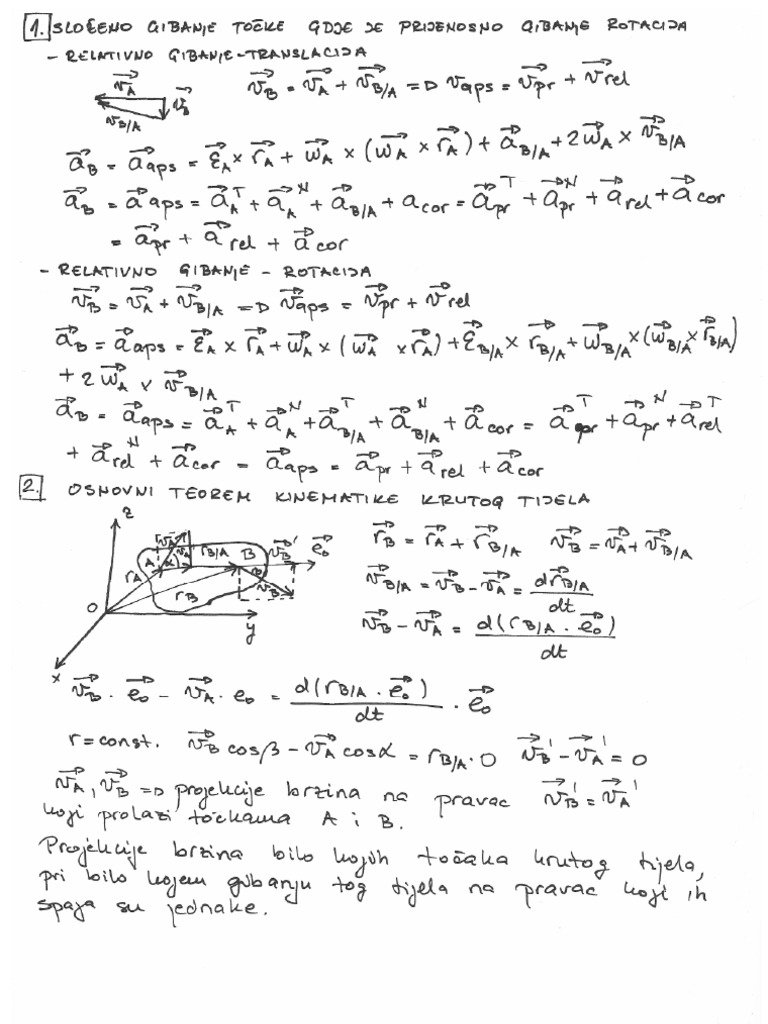 1. SLOŽENO GIBANJE TOČKE GDJE JE PRIJENOSNO GIBANJE ROTACIJA
- RELATIVNO GIBANJE - TRANSLACIJA
v⃗_A v⃗_B v⃗_B/A v⃗_B = v⃗_A + v⃗_B/A ⇒ v_aps = v⃗_pr + v⃗_rel
a⃗_B = a⃗_aps = ε⃗_A × r⃗_A + ω⃗_A × (ω⃗_A × r⃗_A) + a⃗_B/A + 2ω⃗_A × v⃗_B/A
a⃗_B = a⃗_aps = a⃗_A^T + a⃗_A^N + a⃗_B/A + a_cor = a⃗_pr^T + a⃗_pr^N + a⃗_rel + a⃗_cor
= a⃗_pr + a⃗_rel + a⃗_cor
- RELATIVNO GIBANJE - ROTACIJA
v⃗_B = v⃗_A + v⃗_B/A ⇒ v⃗_aps = v⃗_pr + v⃗_rel
a⃗_B = a⃗_aps = ε⃗_A × r⃗_A + ω⃗_A × (ω⃗_A × r⃗_A) + ε⃗_B/A × r⃗_B/A + ω⃗_B/A × (ω⃗_B/A × r⃗_B/A)
+ 2ω⃗_A × v⃗_B/A
a⃗_B = a⃗_aps = a⃗_A^T + a⃗_A^N + a⃗_B/A^T + a⃗_B/A^N + a⃗_cor = a⃗_pr^T + a⃗_pr^N + a⃗_rel^T
+ a⃗_rel^N + a⃗_cor = a⃗_aps = a⃗_pr + a⃗_rel + a⃗_cor
2. OSNOVNI TEOREM KINEMATIKE KRUTOG TIJELA
z v_A A α r_B/A B v⃗_B' e⃗_0 β v_B r_A r_B O y x
r⃗_B = r⃗_A + r⃗_B/A v⃗_B = v⃗_A + v⃗_B/A
v⃗_B/A = v⃗_B - v⃗_A = dr⃗_B/A / dt
v⃗_B - v⃗_A = d(r_B/A · e⃗_0) / dt
v⃗_B · e⃗_0 - v⃗_A · e_0 = d(r_B/A · e⃗_0) / dt · e⃗_0
r = const. v⃗_B cosβ - v⃗_A cosα = r_B/A · 0 v⃗_B' - v⃗_A' = 0
v⃗_A, v⃗_B ⇒ projekcije brzina na pravac v⃗_B' = v⃗_A'
koji prolazi točkama A i B.
Projekcije brzina bilo kojih točaka krutog tijela,
pri bilo kojem gibanju tog tijela na pravac koji ih
spaja su jednake.